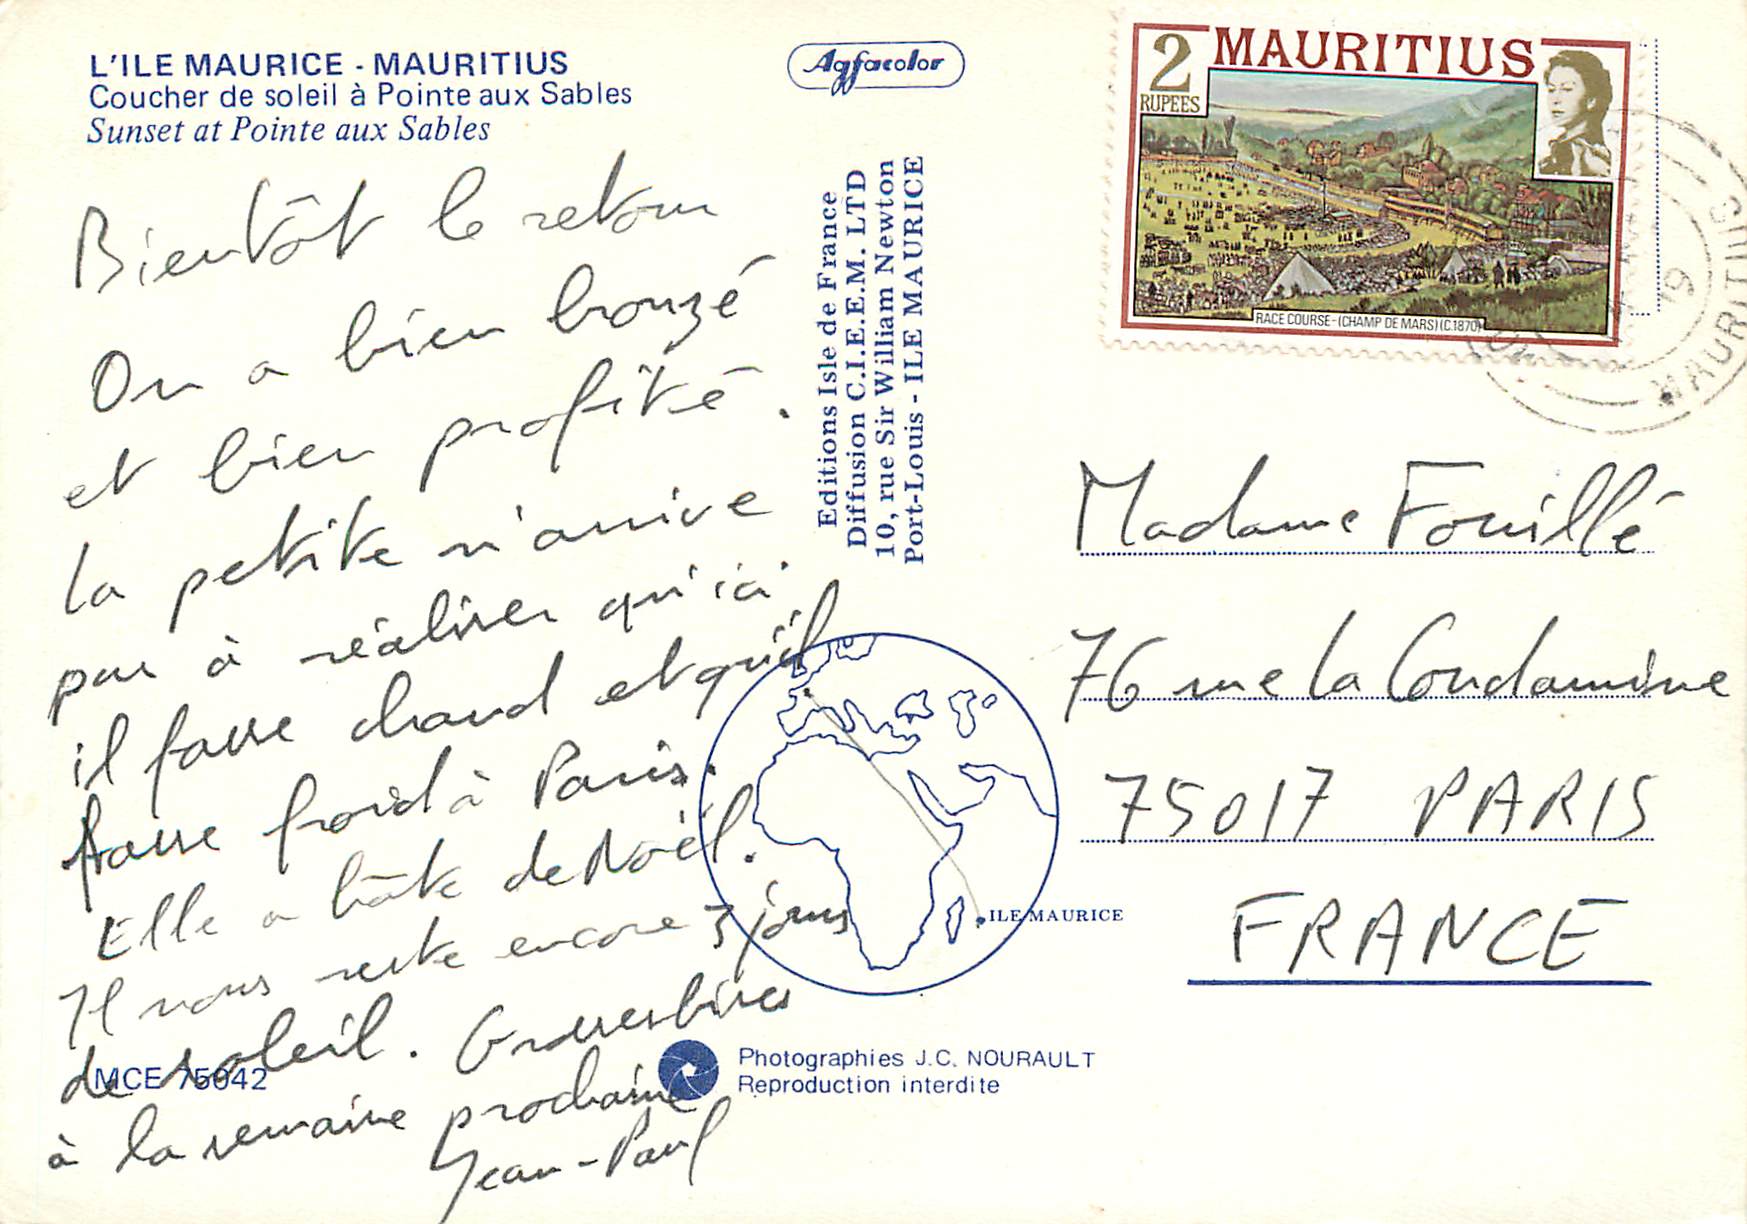 L'ILE MAURICE - MAURITIUS
Coucher de soleil à Pointe aux Sables
Sunset at Pointe aux Sables
Agfacolor
Bientôt le retour
On a bien bronzé
et bien profité.
La petite n'arrive
pas à réaliser qu'ici
il fasse chaud et qu'il
fasse froid à Paris.
Elle a hâte de Noël.
Il nous reste encore 3 jours
de soleil. Grosses bises
à la semaine prochaine
Jean-Paul
MCE 75042
Editions Isle de France
Diffusion C.I.E.E.M. LTD
10, rue Sir William Newton
Port-Louis - ILE MAURICE
ILE MAURICE
Photographies J.C. NOURAULT
Reproduction interdite
2 MAURITIUS
RUPEES
RACE COURSE-(CHAMP DE MARS)(C.1870)
MAURITIUS
19
Madame Fouillé
76 rue la Condamine
75017 PARIS
FRANCE